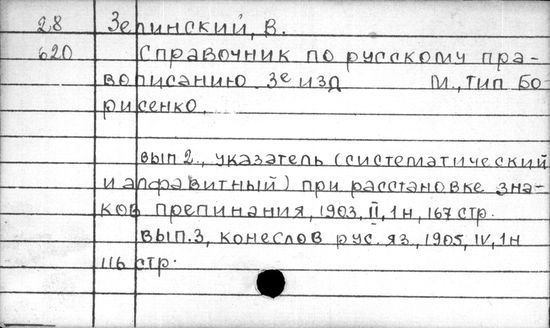 28 Зелинский, В.
620 Справочник по русскому пра-
вописанию. 3е изд М., тип Бо
рисенко.
вып 2., указатель (систематический
и алфавитный) при расстановке зна-
ков препинания, 1903, II, 1н, 167 стр.
вып.3, конеслов рус. яз., 1905, IV, 1н
116 стр.